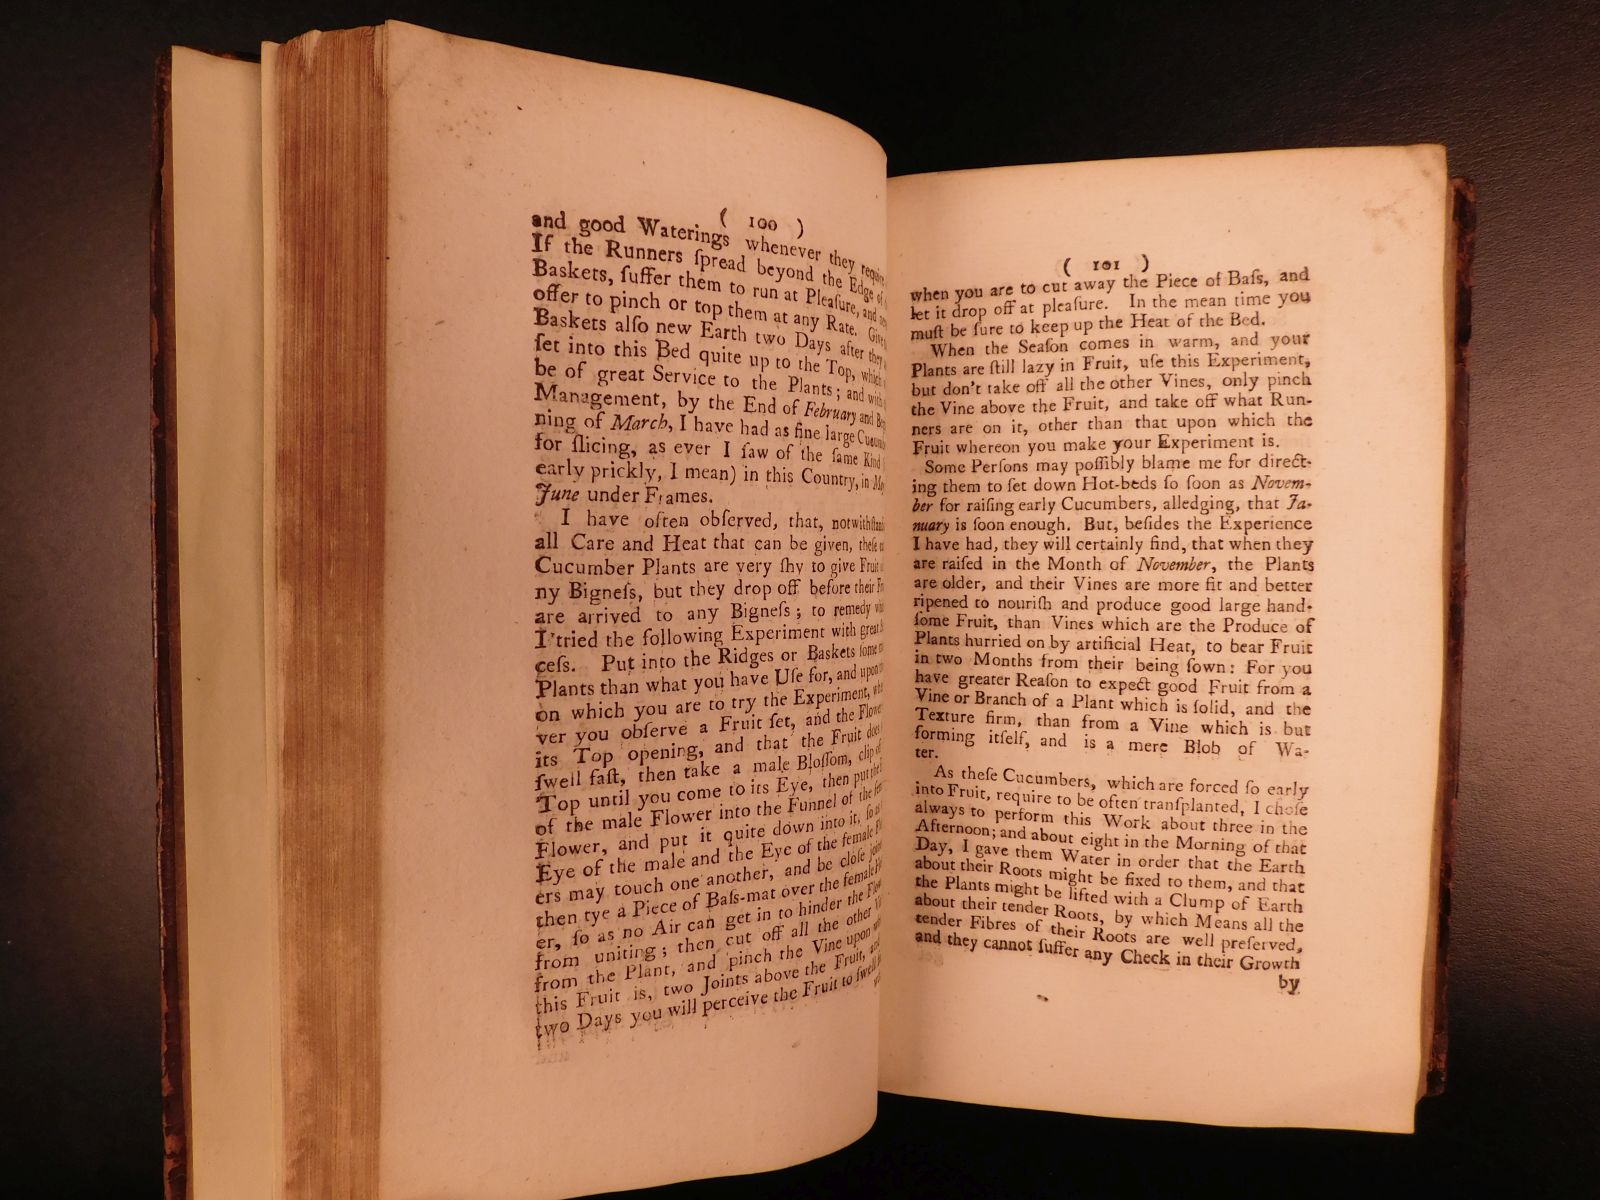 ( 100 )
and good Waterings whenever they require
If the Runners ſpread beyond the Edge of
Baskets, ſuffer them to run at Pleaſure, and
offer to pinch or top them at any Rate.
Baskets alſo new Earth two Days after they
ſet into this Bed quite up to the Top, which
be of great Service to the Plants; and with
Management, by the End of February and
ning of March, I have had as fine large
for ſlicing, as ever I ſaw of the ſame Kind
early prickly, I mean) in this Country, in
June under Frames.
I have often obſerved, that,
all Care and Heat that can be given, theſe
Cucumber Plants are very ſhy to give Fruit
ny Bigneſs, but they drop off before their
are arrived to any Bigneſs; to remedy
I tried the following Experiment with great
ceſs. Put into the Ridges or Baskets ſome
Plants than what you have Uſe for, and upon
on which you are to try the Experiment,
ver you obſerve a Fruit ſet, and the
its Top opening, and that the Fruit does
ſwell faſt, then take a male Bloſſom, clip
Top until you come to its Eye, then put
of the male Flower into the Funnel of the
Flower, and put it quite down into it, ſo
Eye of the male and the Eye of the female
ers may touch one another, and be cloſe
then tye a Piece of Baſs-mat over the female
er, ſo as no Air can get in to hinder the
from uniting; then cut off all the other
from the Plant, and pinch the Vine upon
this Fruit is, two Joints above the Fruit,
two Days you will perceive the Fruit to ſwell
( 101 )
when you are to cut away the Piece of Baſs, and
let it drop off at pleaſure. In the mean time you
muſt be ſure to keep up the Heat of the Bed.
When the Seaſon comes in warm, and your
Plants are ſtill lazy in Fruit, uſe this Experiment,
but don't take off all the other Vines, only pinch
the Vine above the Fruit, and take off what Run-
ners are on it, other than that upon which the
Fruit whereon you make your Experiment is.
Some Perſons may poſſibly blame me for direct-
ing them to ſet down Hot-beds ſo ſoon as Novem-
ber for raiſing early Cucumbers, alledging, that Ja-
nuary is ſoon enough. But, beſides the Experience
I have had, they will certainly find, that when they
are raiſed in the Month of November, the Plants
are older, and their Vines are more fit and better
ripened to nouriſh and produce good large hand-
ſome Fruit, than Vines which are the Produce of
Plants hurried on by artificial Heat, to bear Fruit
in two Months from their being ſown: For you
have greater Reaſon to expect good Fruit from a
Vine or Branch of a Plant which is ſolid, and the
Texture firm, than from a Vine which is but
forming itſelf, and is a mere Blob of Wa-
ter.
As theſe Cucumbers, which are forced ſo early
into Fruit, require to be often tranſplanted, I choſe
always to perform this Work about three in the
Afternoon; and about eight in the Morning of that
Day, I gave them Water in order that the Earth
about their Roots might be fixed to them, and that
the Plants might be lifted with a Clump of Earth
about their tender Roots, by which Means all the
tender Fibres of their Roots are well preſerved,
and they cannot ſuffer any Check in their Growth
by